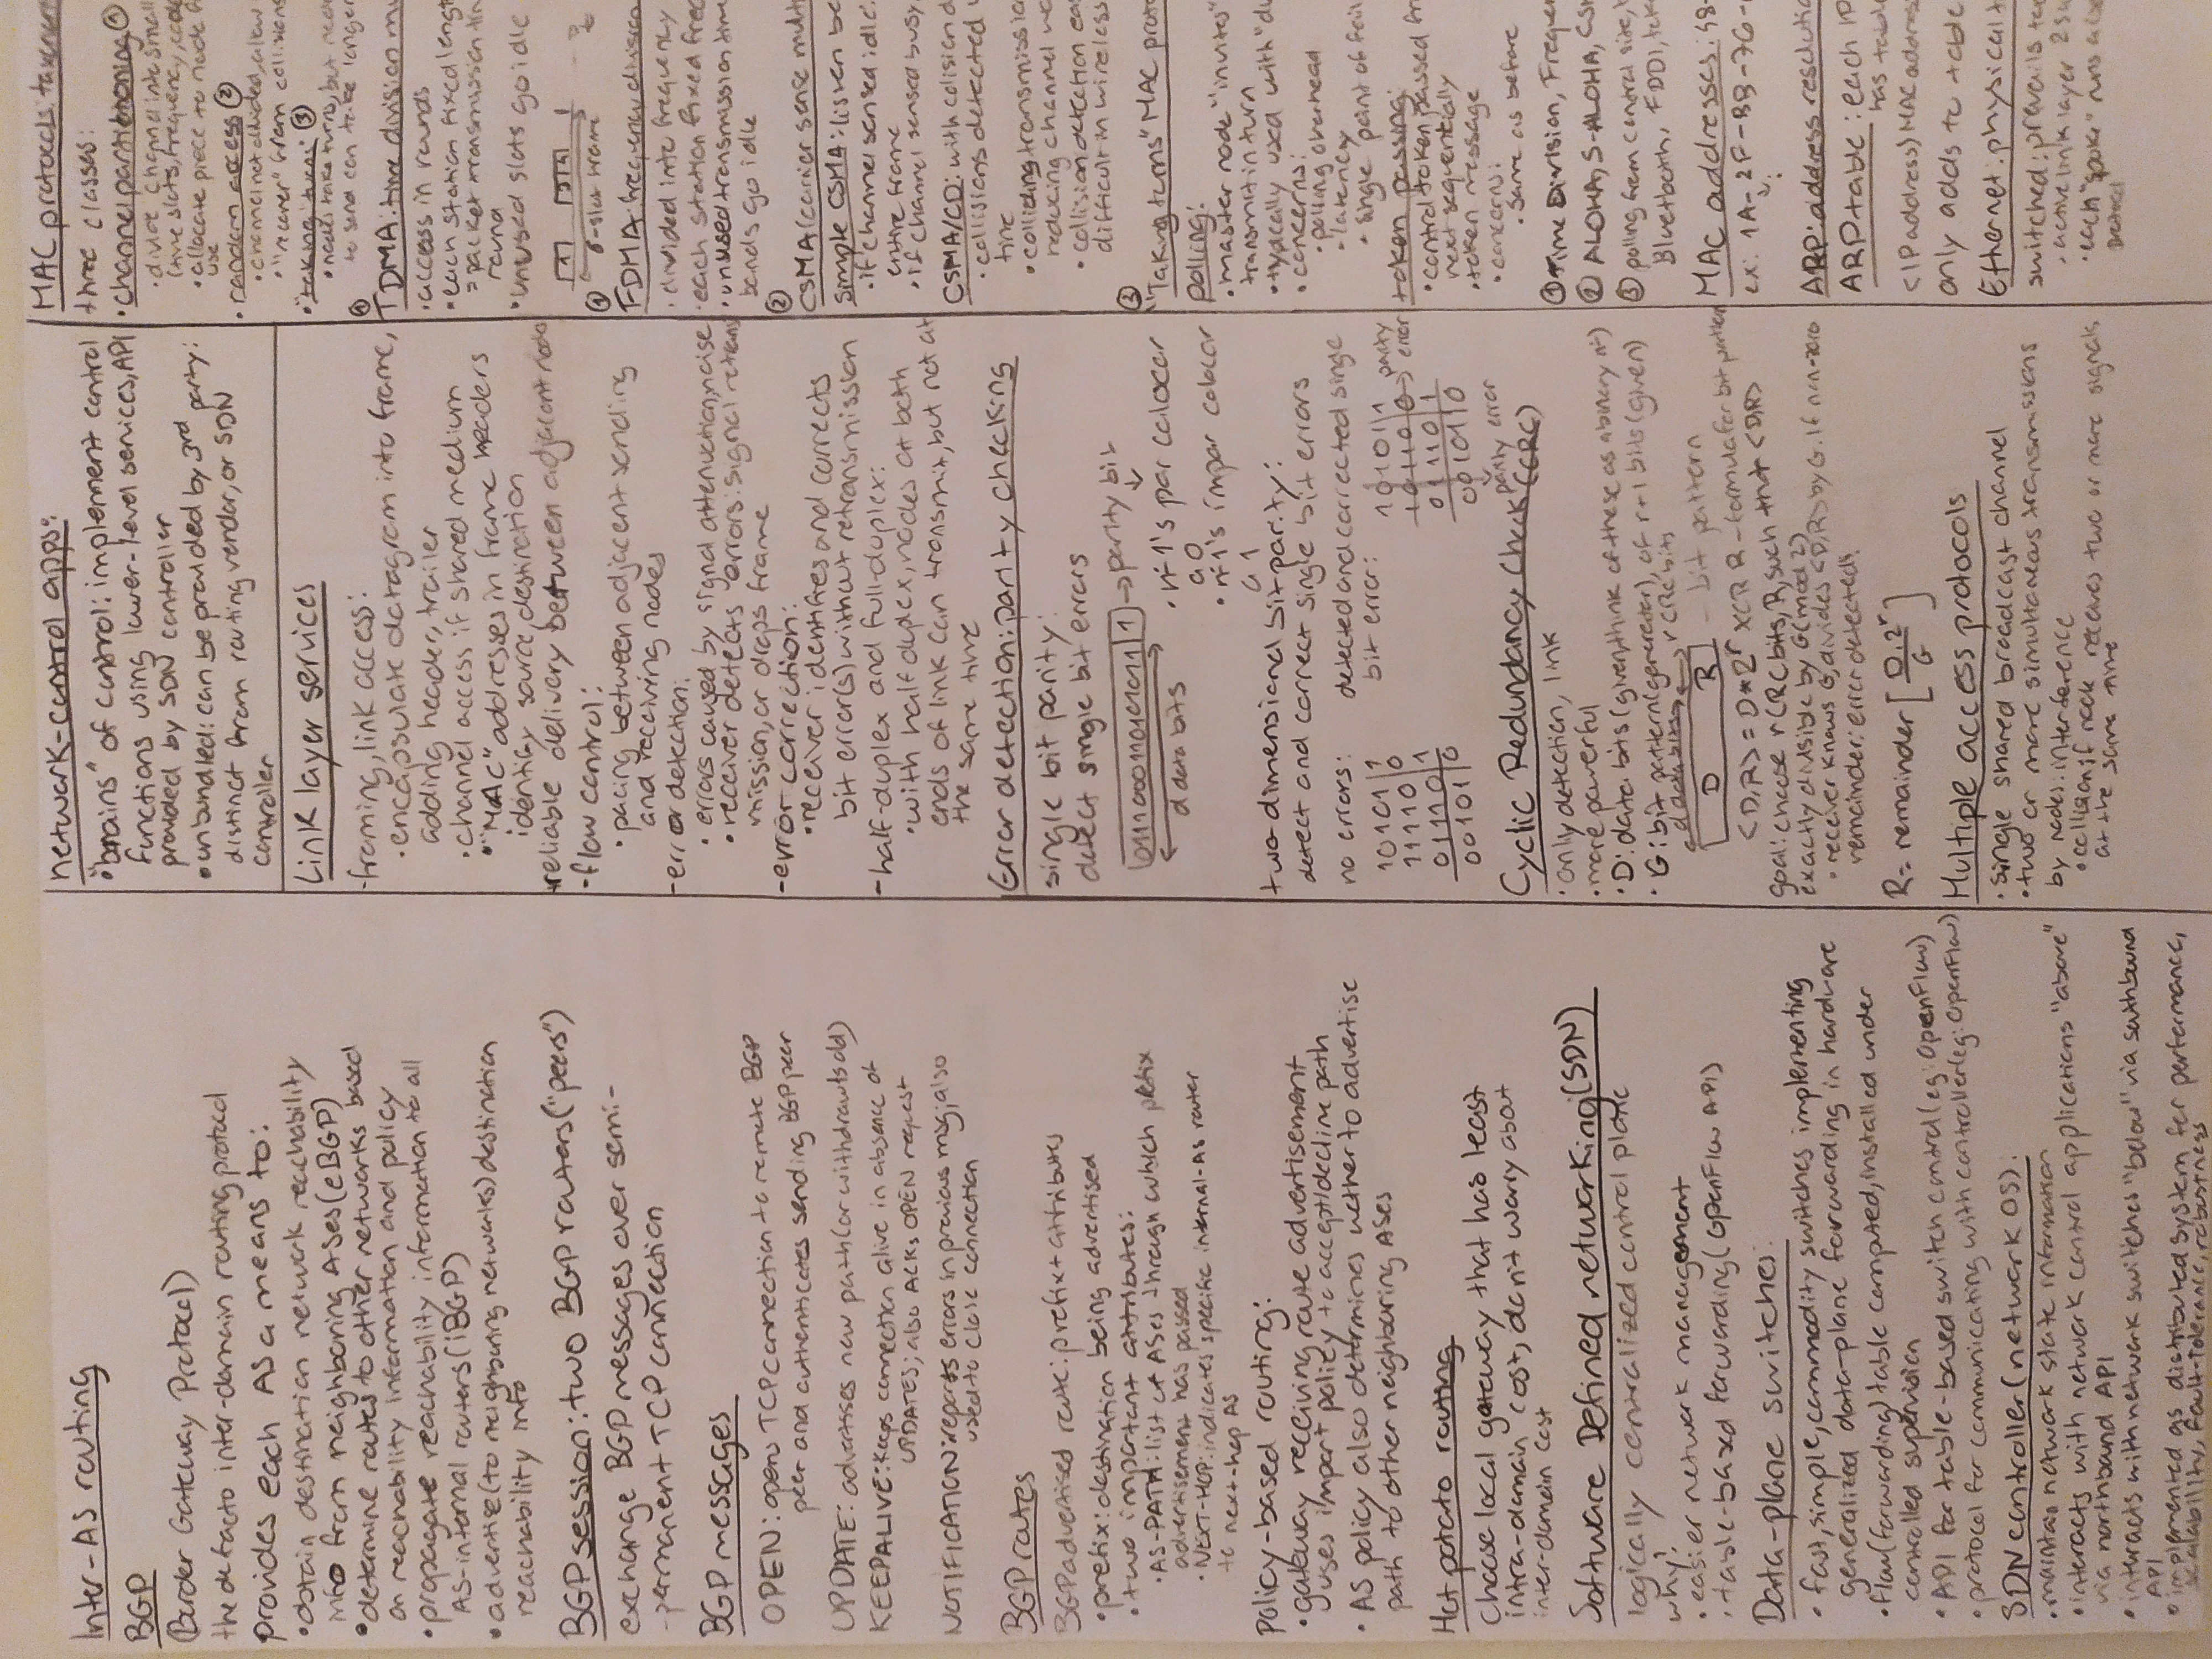 Inter-AS routing
BGP
(Border Gateway Protocol)
the defacto inter-domain routing protocol
provides each AS a means to:
• obtain destination network reachability
info from neighboring ASes (eBGP)
• determine routes to other networks based
on reachability information and policy
• propagate reachability information to all
AS-internal routers (iBGP)
• advertise (to neighboring networks) destination
reachability info
BGP session: two BGP routers ("peers")
exchange BGP messages over semi-
-permanent TCP connection
BGP messages
OPEN: opens TCP connection to remote BGP
peer and authenticates sending BGP peer
UPDATE: advertises new path (or withdraws old)
KEEPALIVE: keeps connection alive in absence of
UPDATES; also ACKs OPEN request
NOTIFICATION: reports errors in previous msg; also
used to close connection
BGP routes
BGP advertised route: prefix + attributes
• prefix: destination being advertised
• two important attributes:
• AS-PATH: list of ASes through which prefix
advertisement has passed
• NEXT-HOP: indicates specific internal-AS router
to next-hop AS
Policy-based routing:
• gateway receiving route advertisement
uses import policy to accept/decline path
• AS policy also determines wether to advertise
path to other neighboring ASes
Hot potato routing
choose local gateway that has least
intra-domain cost, don't worry about
inter-domain cost
Software Defined networking (SDN)
logically centralized control plane
why?
• easier network management
• table-based forwarding (OpenFlow API)
Data-plane switches:
• fast, simple, commodity switches implementing
generalized data-plane forwarding in hardware
• flow (forwarding) table computed, installed under
controlled supervision
• API for table-based switch control (eg: OpenFlow)
• protocol for communicating with controller (eg: OpenFlow)
SDN controller (network OS):
• maintain network state information
• interacts with network control applications "above"
via northbound API
• interacts with network switches "below" via southbound
API
• implemented as distributed system for performance,
scalability, fault-tolerance, robustness
network-control apps:
• "brains" of control: implement control
functions using lower-level services, API
provided by SDN controller
• unbundled: can be provided by 3rd party:
distinct from routing vendor, or SDN
controller
Link layer services
-framing, link access:
• encapsulate datagram into frame,
adding header, trailer
• channel access if shared medium
• "MAC" addresses in frame headers
identify source, destination
-reliable delivery between adjacent nodes
-flow control:
• pacing between adjacent sending
and receiving nodes
-error detection:
• errors caused by signal attenuation, noise
• receiver detects errors: signal retrans
mission, or drops frame
-error correction:
• receiver identifies and corrects
bit error(s) without retransmission
-half-duplex and full-duplex:
• with half duplex, nodes at both
ends of link can transmit, but not at
the same time
Error detection: parity checking
single bit parity:
detect single bit errors
0111000110101011 | 1 → parity bit
data bits
• nº 1's par colocar
a 0
• nº 1's impar colocar
a 1
two dimensional bit parity:
detect and correct single bit errors
no errors:
10101|1
11110|0
01110|1
00101|0
detected and corrected single
bit error:
10101|1
10110|0 → parity error
01110|1
00101|0
parity error
Cyclic Redundancy Check (CRC)
• only detection, link
• more powerful
• D: data bits (given, think of these as a binary nº)
• G: bit pattern (generator), of r+1 bits (given)
d data bits r CRC bits
D R - bit pattern
<D,R> = D * 2^r XOR R - formula for bit pattern
goal: choose r CRC bits, R, such that <D,R>
exactly divisible by G (mod 2)
• receiver knows G, divides <D,R> by G. If non-zero
remainder: error detected!
R = remainder [D.2^r / G]
Multiple access protocols
• single shared broadcast channel
• two or more simultaneous transmissions
by nodes: interference
• collision if node receives two or more signals
at the same time
MAC protocols: taxonomy
three classes:
• channel partitioning ①
• divide channel into small
(time slots, frequency, code
• allocate piece to node
use
• random access ②
• channel not divided, allow
• "recover" from collisions
• "taking turns" ③
• nodes take turns, but
to send can take longer
①
TDMA: time division
• access in rounds
• each station fixed length
= packet transmission
round
• unused slots go idle
6-slot frame
①
FDMA: frequency division
• divided into frequency
• each station fixed
• unused transmission
bands go idle
②
CSMA (carrier sense
simple CSMA: listen
• if channel sensed idle:
entire frame
• if channel sensed busy,
CSMA/CD: with collision
• collisions detected
time
• colliding transmission
reducing channel
• collision detection
difficult in wireless
③
"Taking turns" MAC
polling:
• master node "invites"
transmit in turn
• typically used with
• concerns:
• polling overhead
• latency
• single point of
token passing:
• control token passed
next sequentially
• token message
• concerns:
• same as before
① Time Division, Frequency
② ALOHA, S-ALOHA,
③ polling from central site,
Bluetooth, FDDI,
MAC addresses: 48-
ex: 1A-2F-BB-76-
ARP: address resolution
ARP table: each IP
has table
<IP address; MAC address
only adds to table
Ethernet: physical
switched: prevails
• active link layer 2
• each "spoke" runs a
protocol